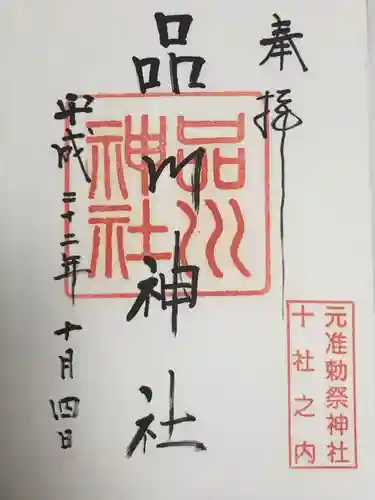 奉拝
品川神社
品川
神社
平成二十二年十月四日
元准勅祭神社
十社之内